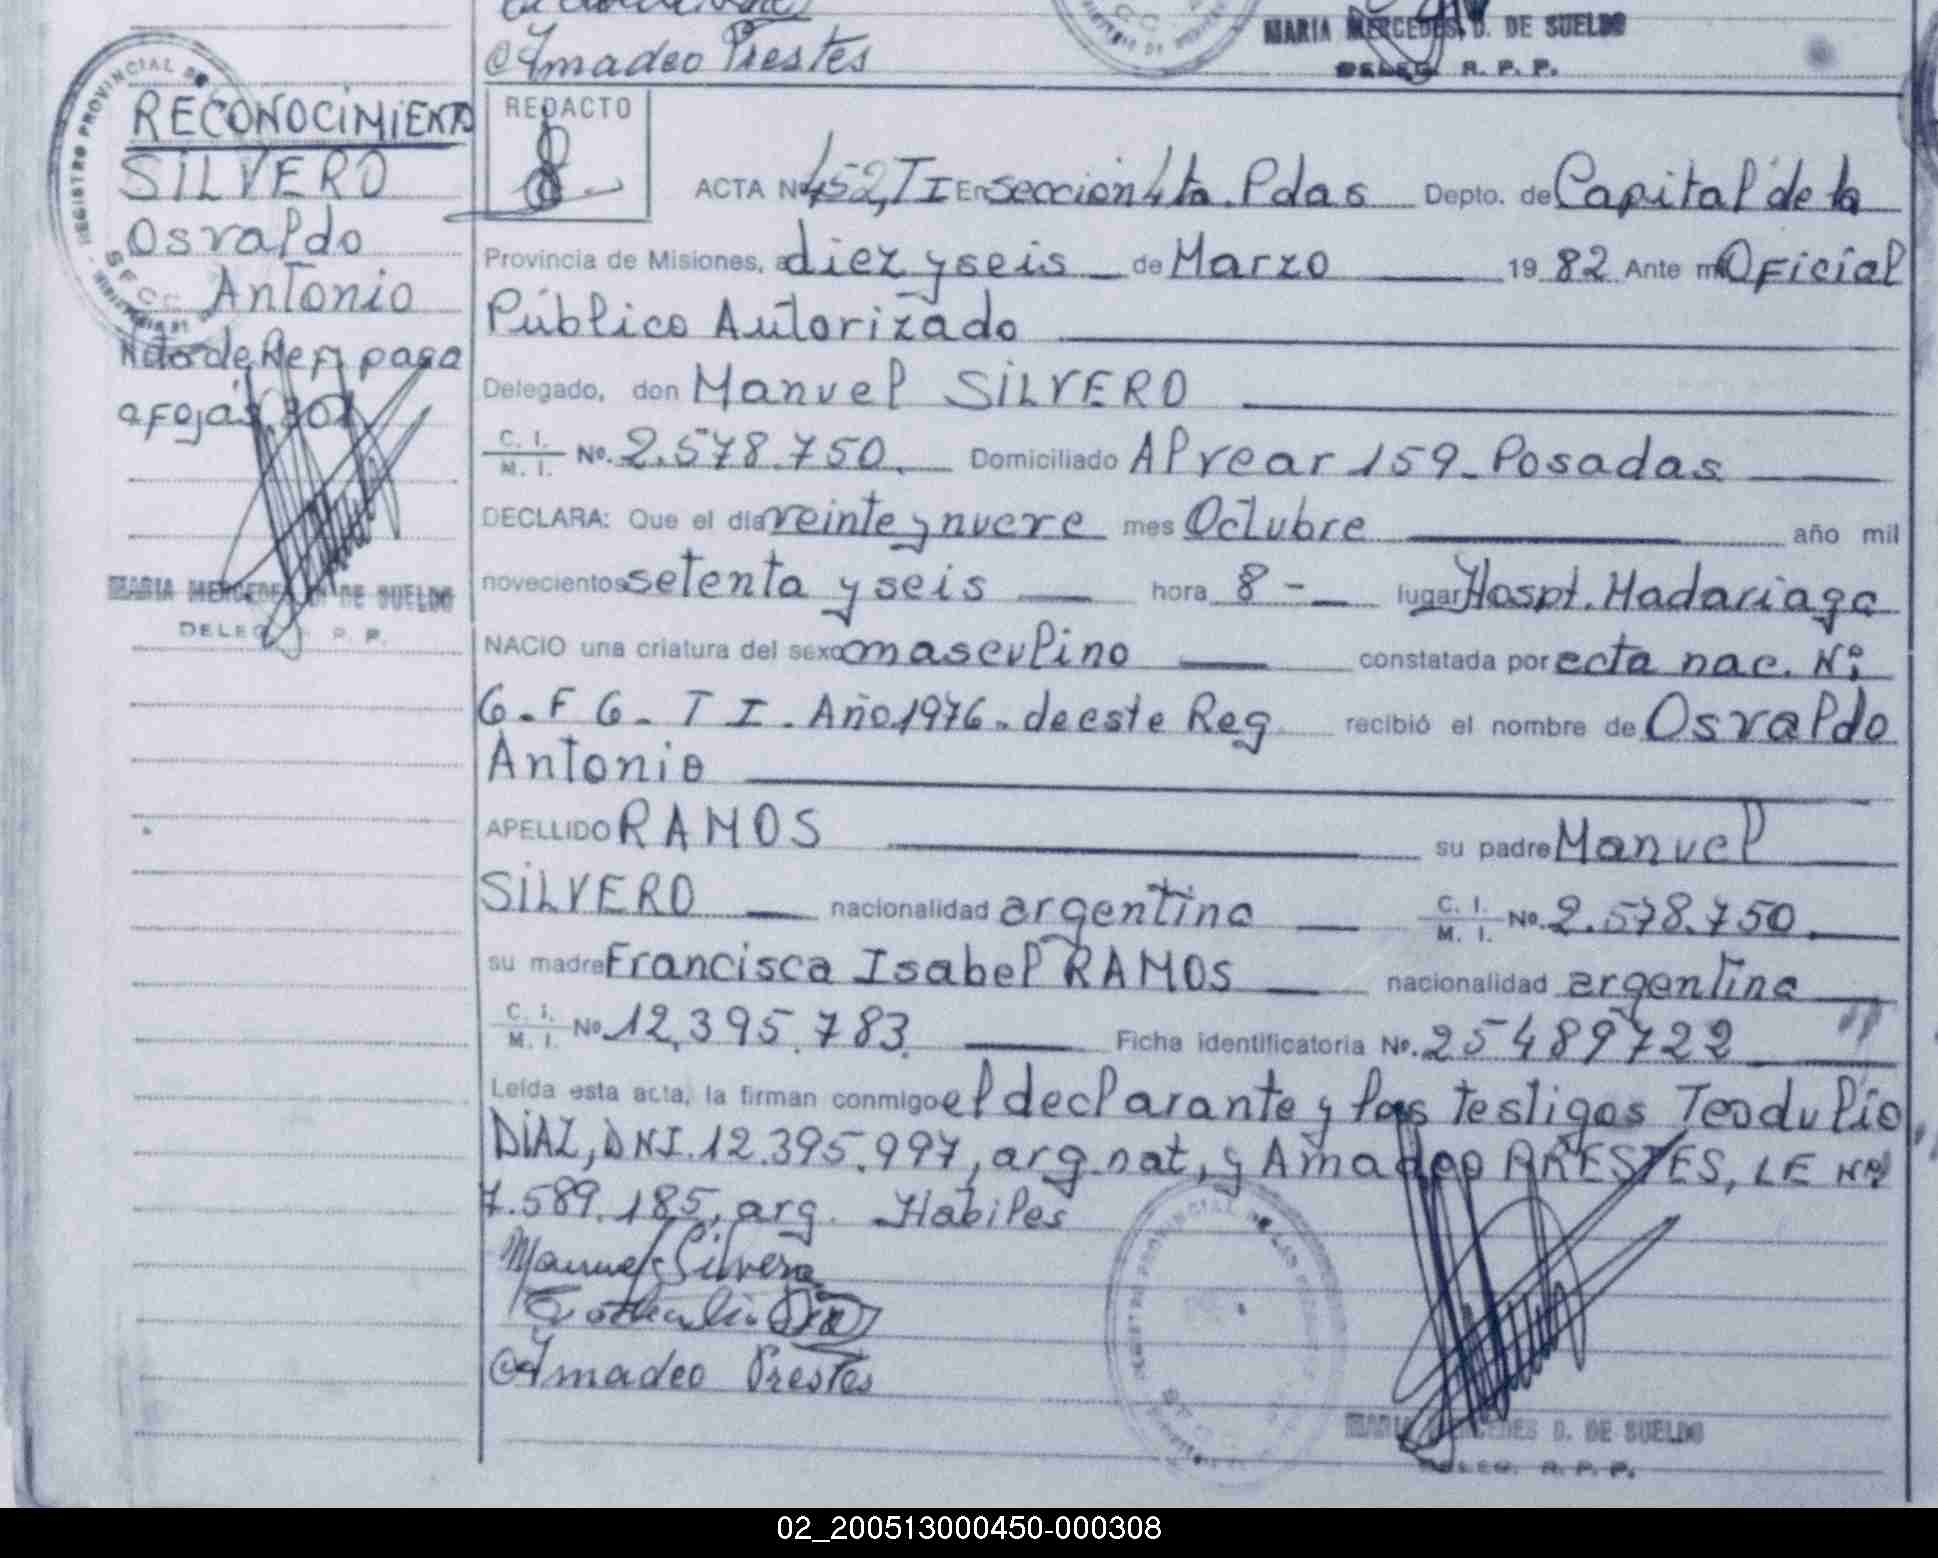 Amadeo Prestes
MARIA MERCEDES D. DE SUELDO
DELEG. R. P. P.
REGISTRO PROVINCIAL DE
RECONOCIMIENTO
SILVERO
Osvaldo
Antonio
Ndo de Ref pasa
a fojas 301
MARIA MERCEDES D. DE SUELDO
DELEG. R. P. P.
REDACTO
ACTA Nº 452, T I En sección 4ta. Pdas Depto. de Capital de la
Provincia de Misiones, a diez y seis de Marzo 19 82 Ante mi Oficial
Público Autorizado
Delegado, don Manuel SILVERO
C. I. / M. I. Nº. 2.578.750. Domiciliado Alvear 159 - Posadas
DECLARA: Que el día veinte y nueve mes Octubre año mil
novecientos setenta y seis hora 8 - lugar Hospt. Madariaga
NACIO una criatura del sexo masculino constatada por ecta nac. Nº:
6 - F 6 - T I - Año 1976 - de este Reg recibió el nombre de Osvaldo
Antonio
APELLIDO RAMOS su padre Manuel
SILVERO nacionalidad argentina C. I. / M. I. Nº. 2.578.750
su madre Francisca Isabel RAMOS nacionalidad argentina
C. I. / M. I. Nº 12.395.783. Ficha identificatoria Nº. 25489722
Leída esta acta, la firman conmigo el declarante y los testigos Teodulio
DIAZ, DNI. 12.395.997, arg. nat, y Amadeo PRESTES, LE Nº
7.589.185, arg. Habiles
Manuel Silvero
Amadeo Prestes
MARIA MERCEDES D. DE SUELDO
DELEG. R. P. P.
02_200513000450-000308